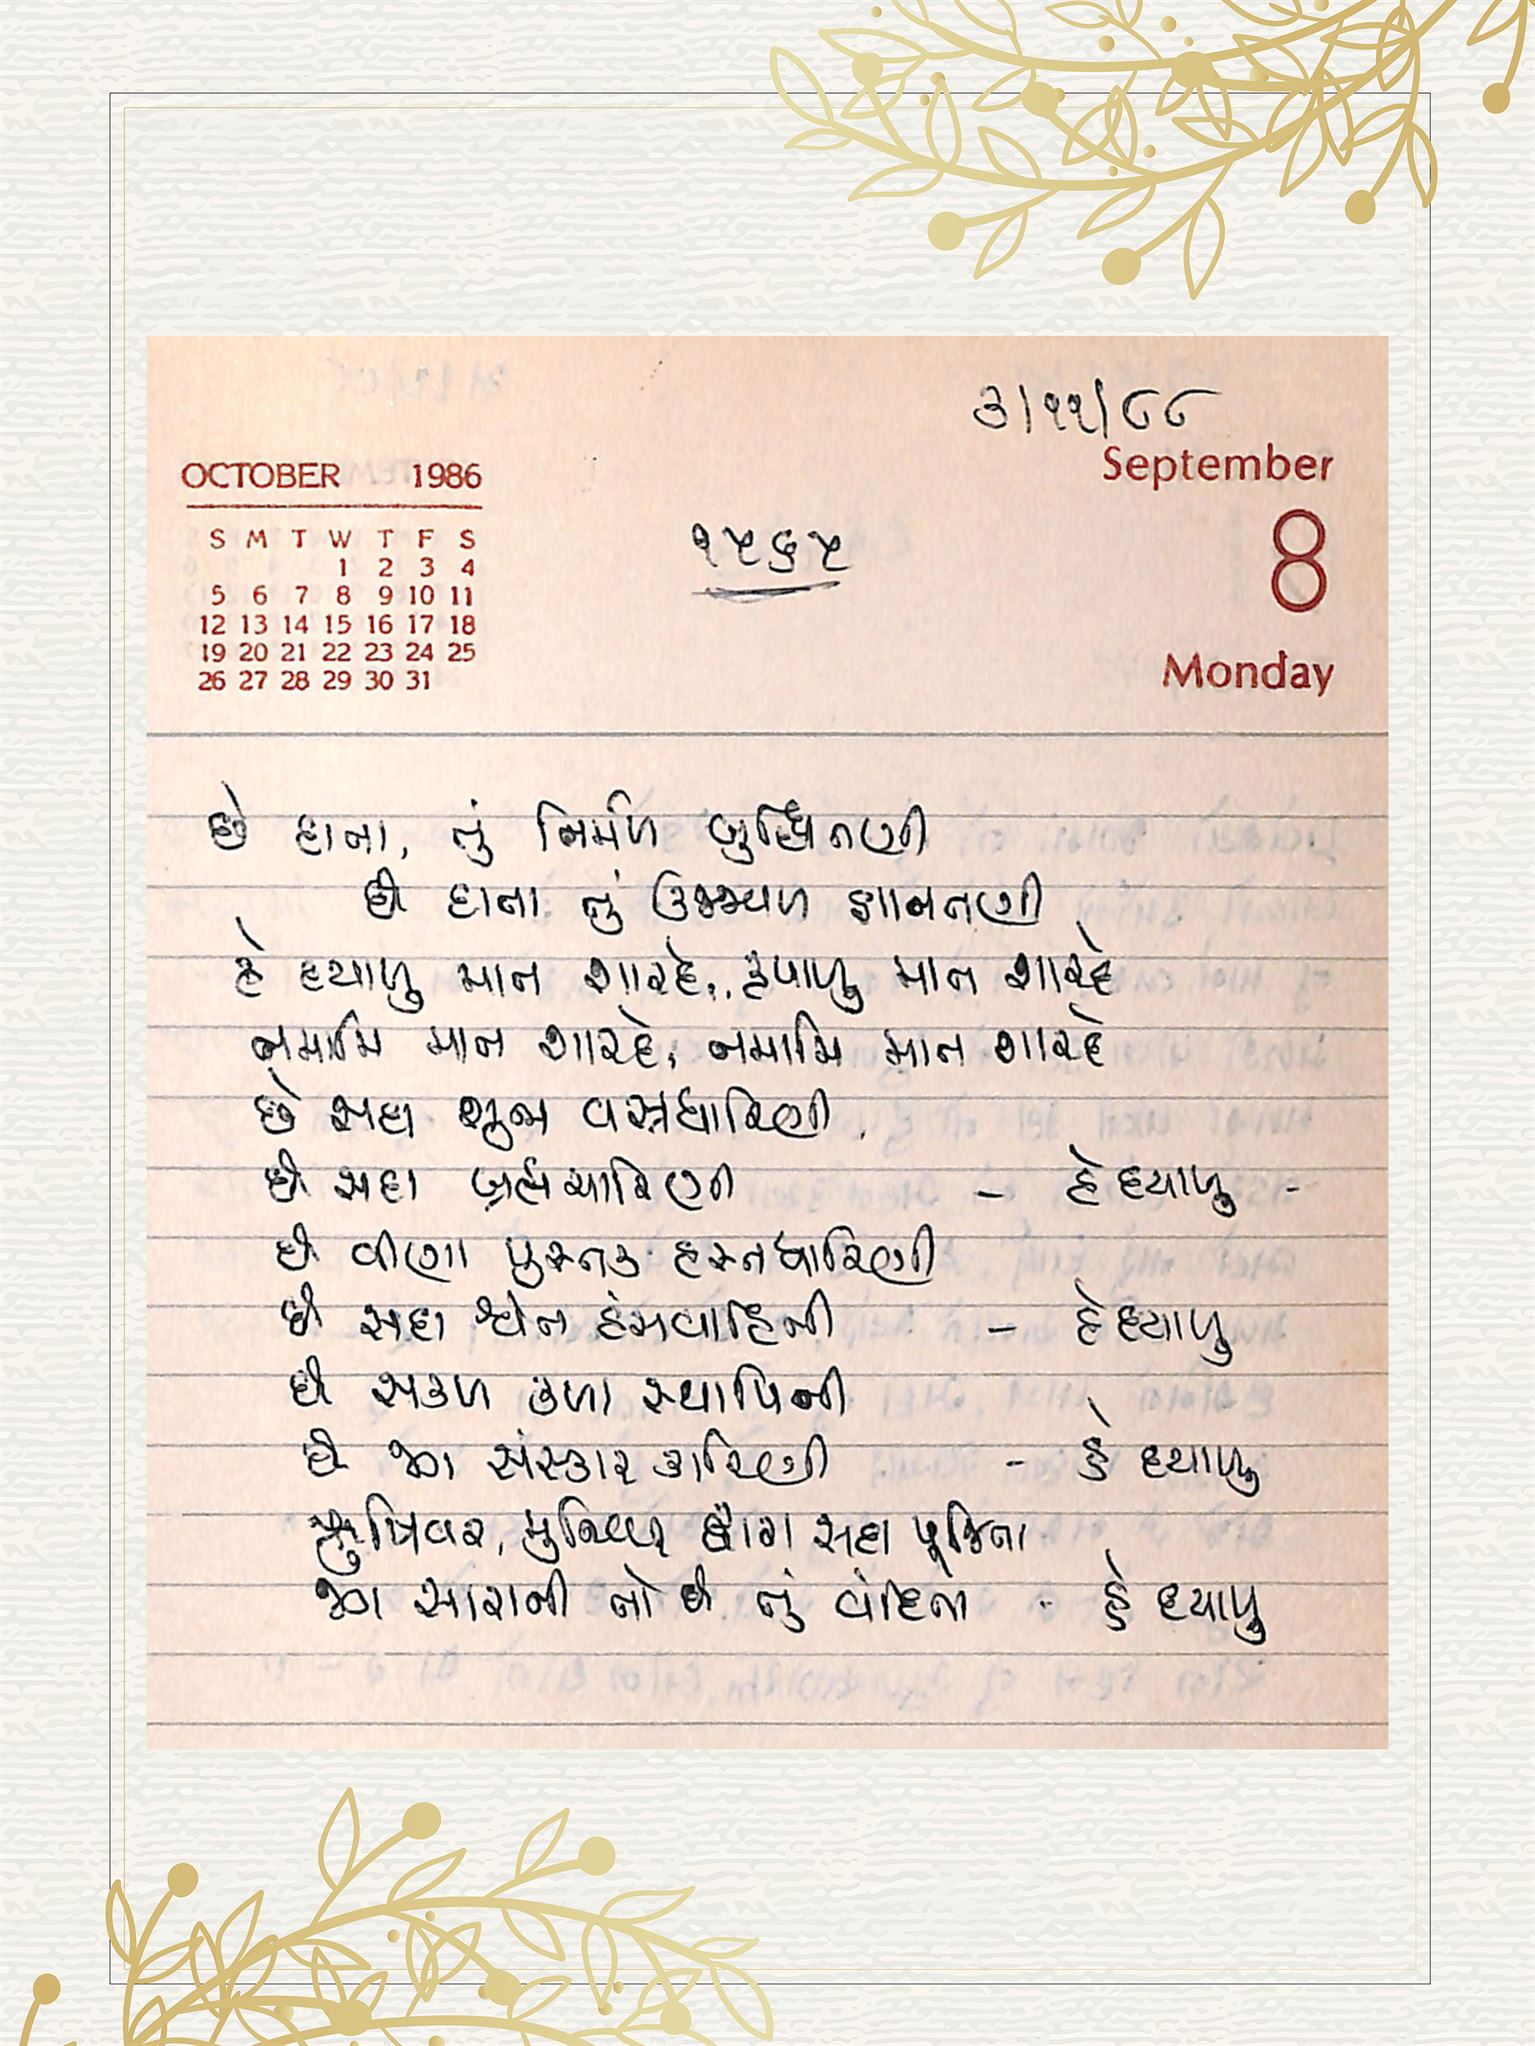 ૩/૧૧/૮૮
OCTOBER 1986
September
S M T W T F S
1 2 3 4
5 6 7 8 9 10 11
12 13 14 15 16 17 18
19 20 21 22 23 24 25
26 27 28 29 30 31
૧૫૬૫
8
Monday
છે દાતા, તું નિર્મળ બુદ્ધિતણી
છે દાતા તું ઉજ્જ્વળ જ્ઞાનતણી
હે દયાળુ માત શારદે, કૃપાળુ માત શારદે
નમામિ માત શારદે, નમામિ માત શારદે
છે સદા શુભ્ર વસ્ત્રધારિણી
છે સદા બ્રહ્મચારિણી - હે દયાળુ -
છે વીણા પુસ્તક હસ્તધારિણી
છે સદા શ્વેત હંસવાહિની - હે દયાળુ
છે સકળ કળા સ્થાપિની
છે જગ સંસ્કાર કારિણી - હે દયાળુ
ઋષિવર, મુનિવર સદા પૂજિતા
જગ સારાની તો છે તું વંદિતા - હે દયાળુ